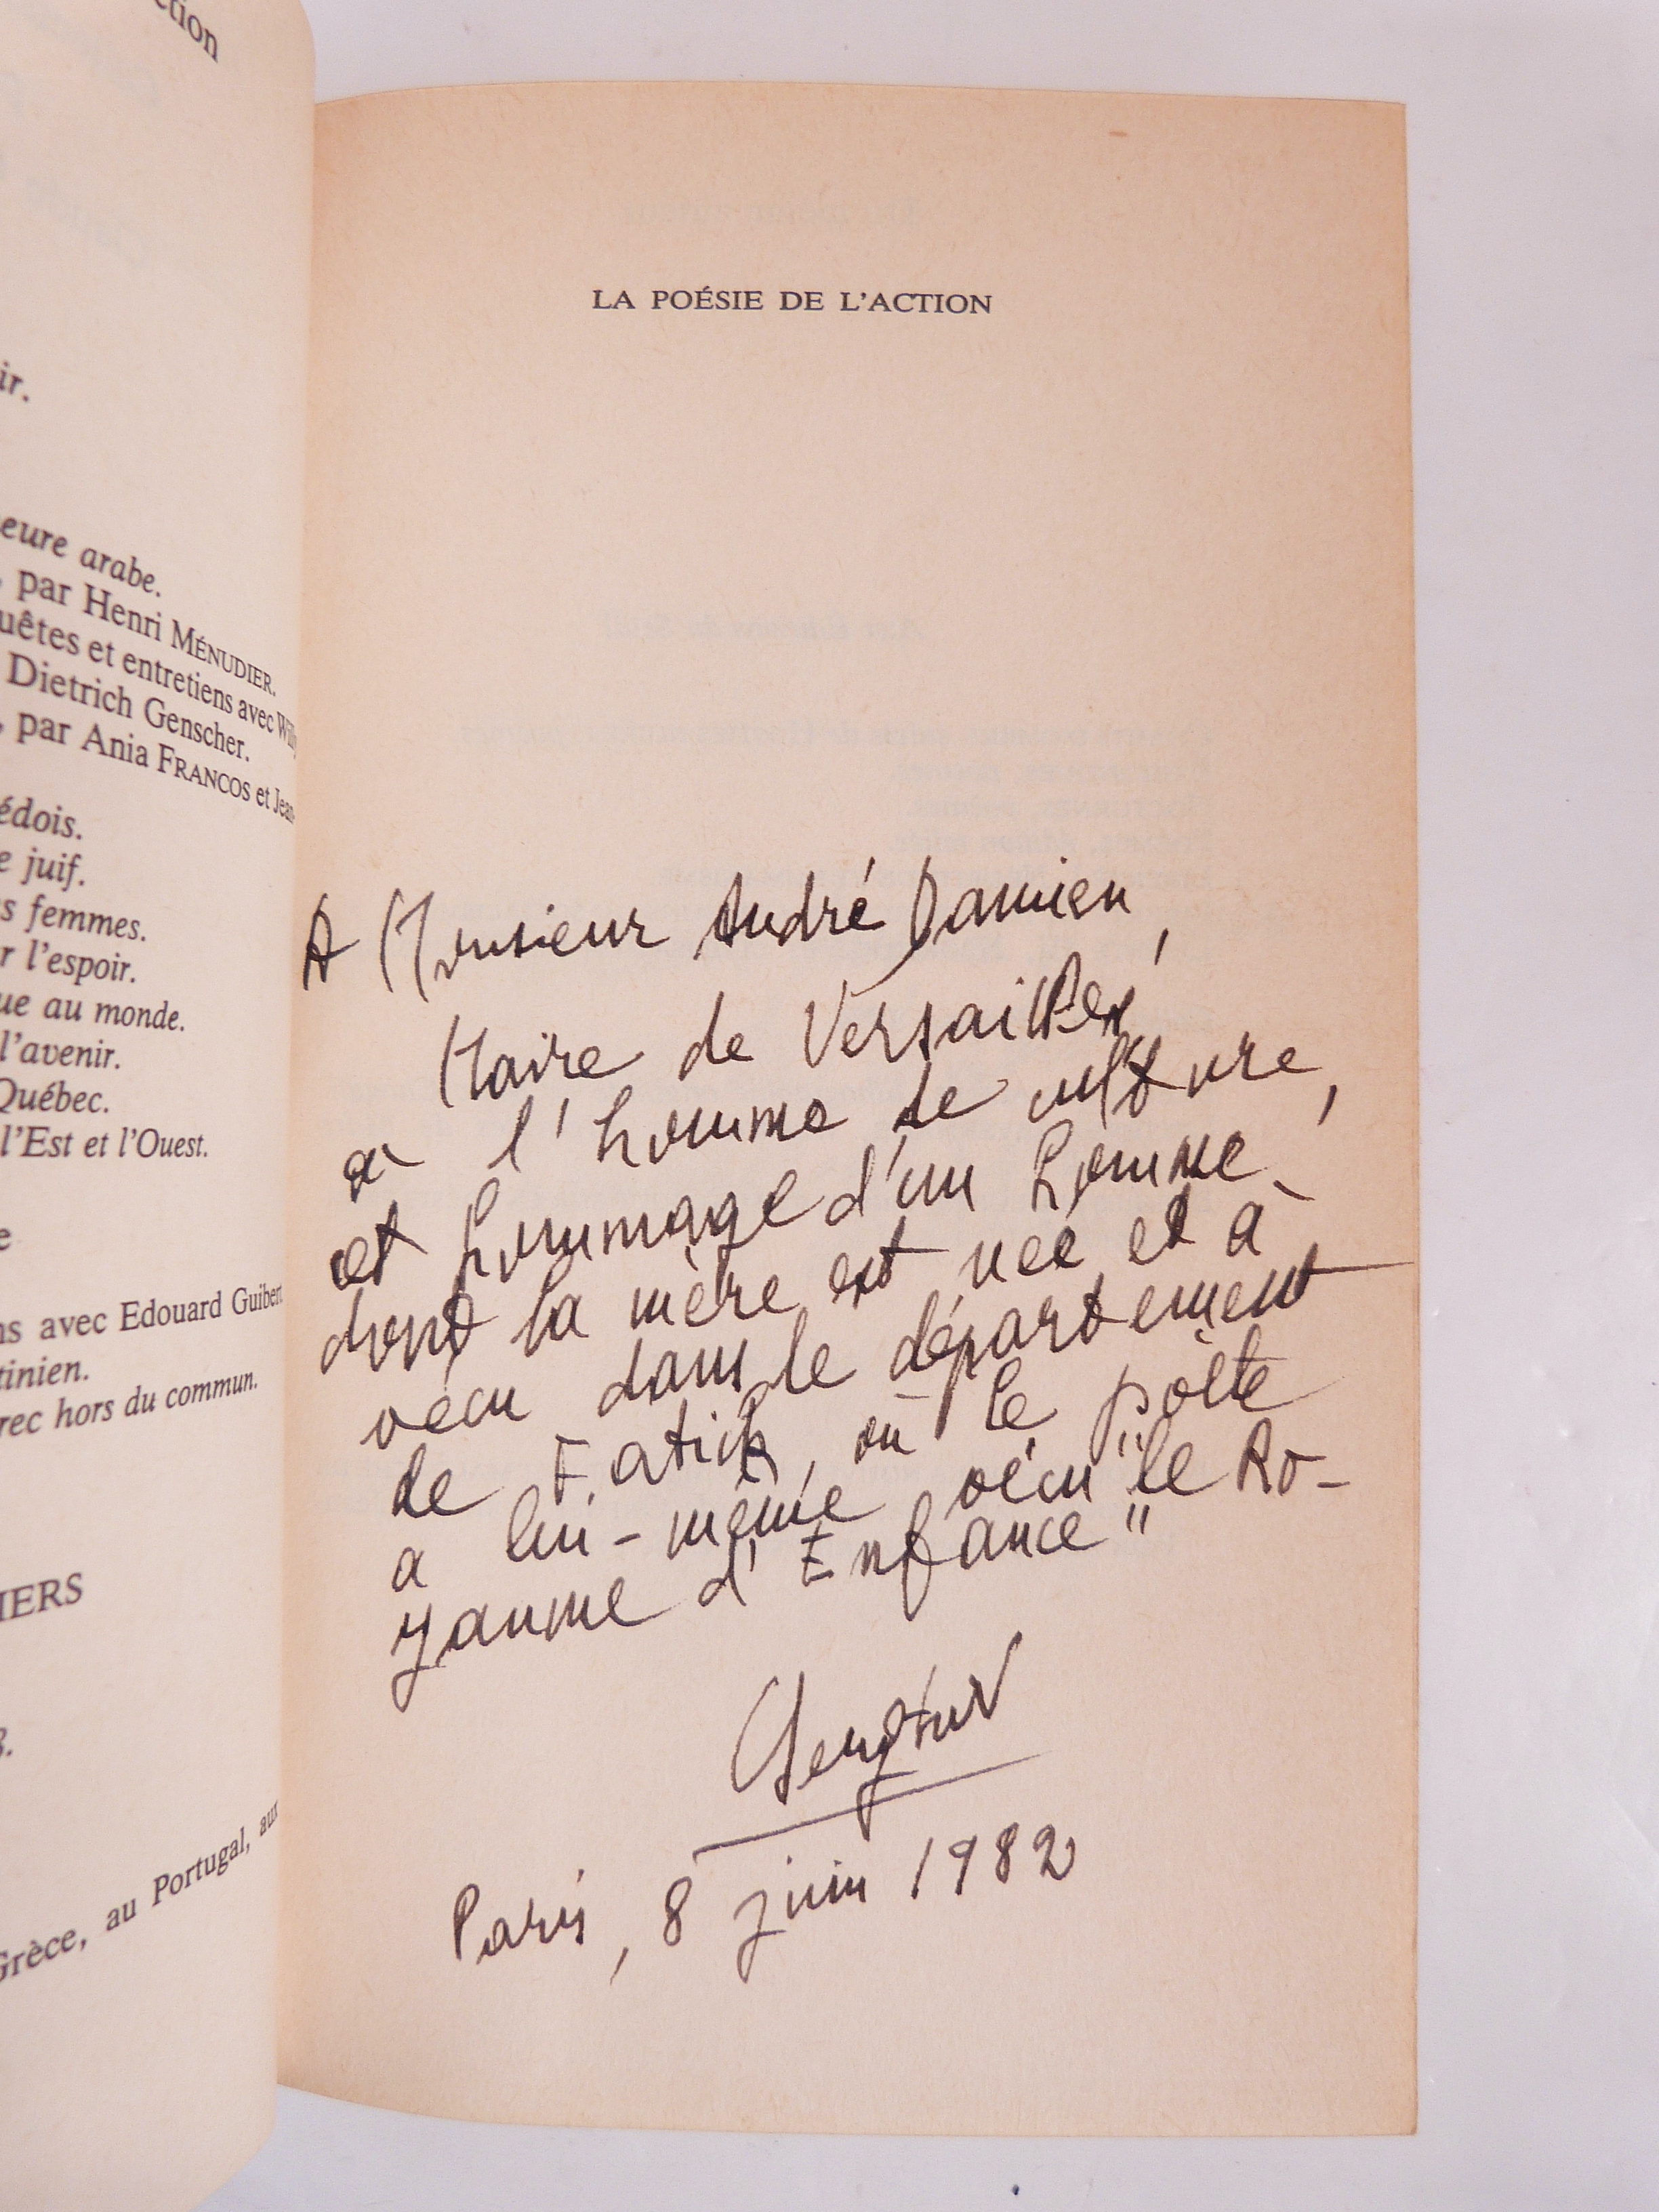 ction
ir.
eure arabe.
, par Henri MÉNUDIER.
uêtes et entretiens avec Willy
Dietrich Genscher.
, par Ania FRANCOS et Jean-
édois.
e juif.
s femmes.
r l'espoir.
ue au monde.
l'avenir.
Québec.
l'Est et l'Ouest.
e
ns avec Edouard Guibert
tinien.
rec hors du commun.
IERS
3.
Grèce, au Portugal, aux
LA POÉSIE DE L'ACTION
A Monsieur André Damien,
Maire de Versailles,
à l'homme de culture,
et hommage d'un homme
dont la mère est née et a
vécu dans le département
de Fatick, où le poète
a lui-même vécu "le Ro-
yaume d'Enfance"
Paris, 8 juin 1982